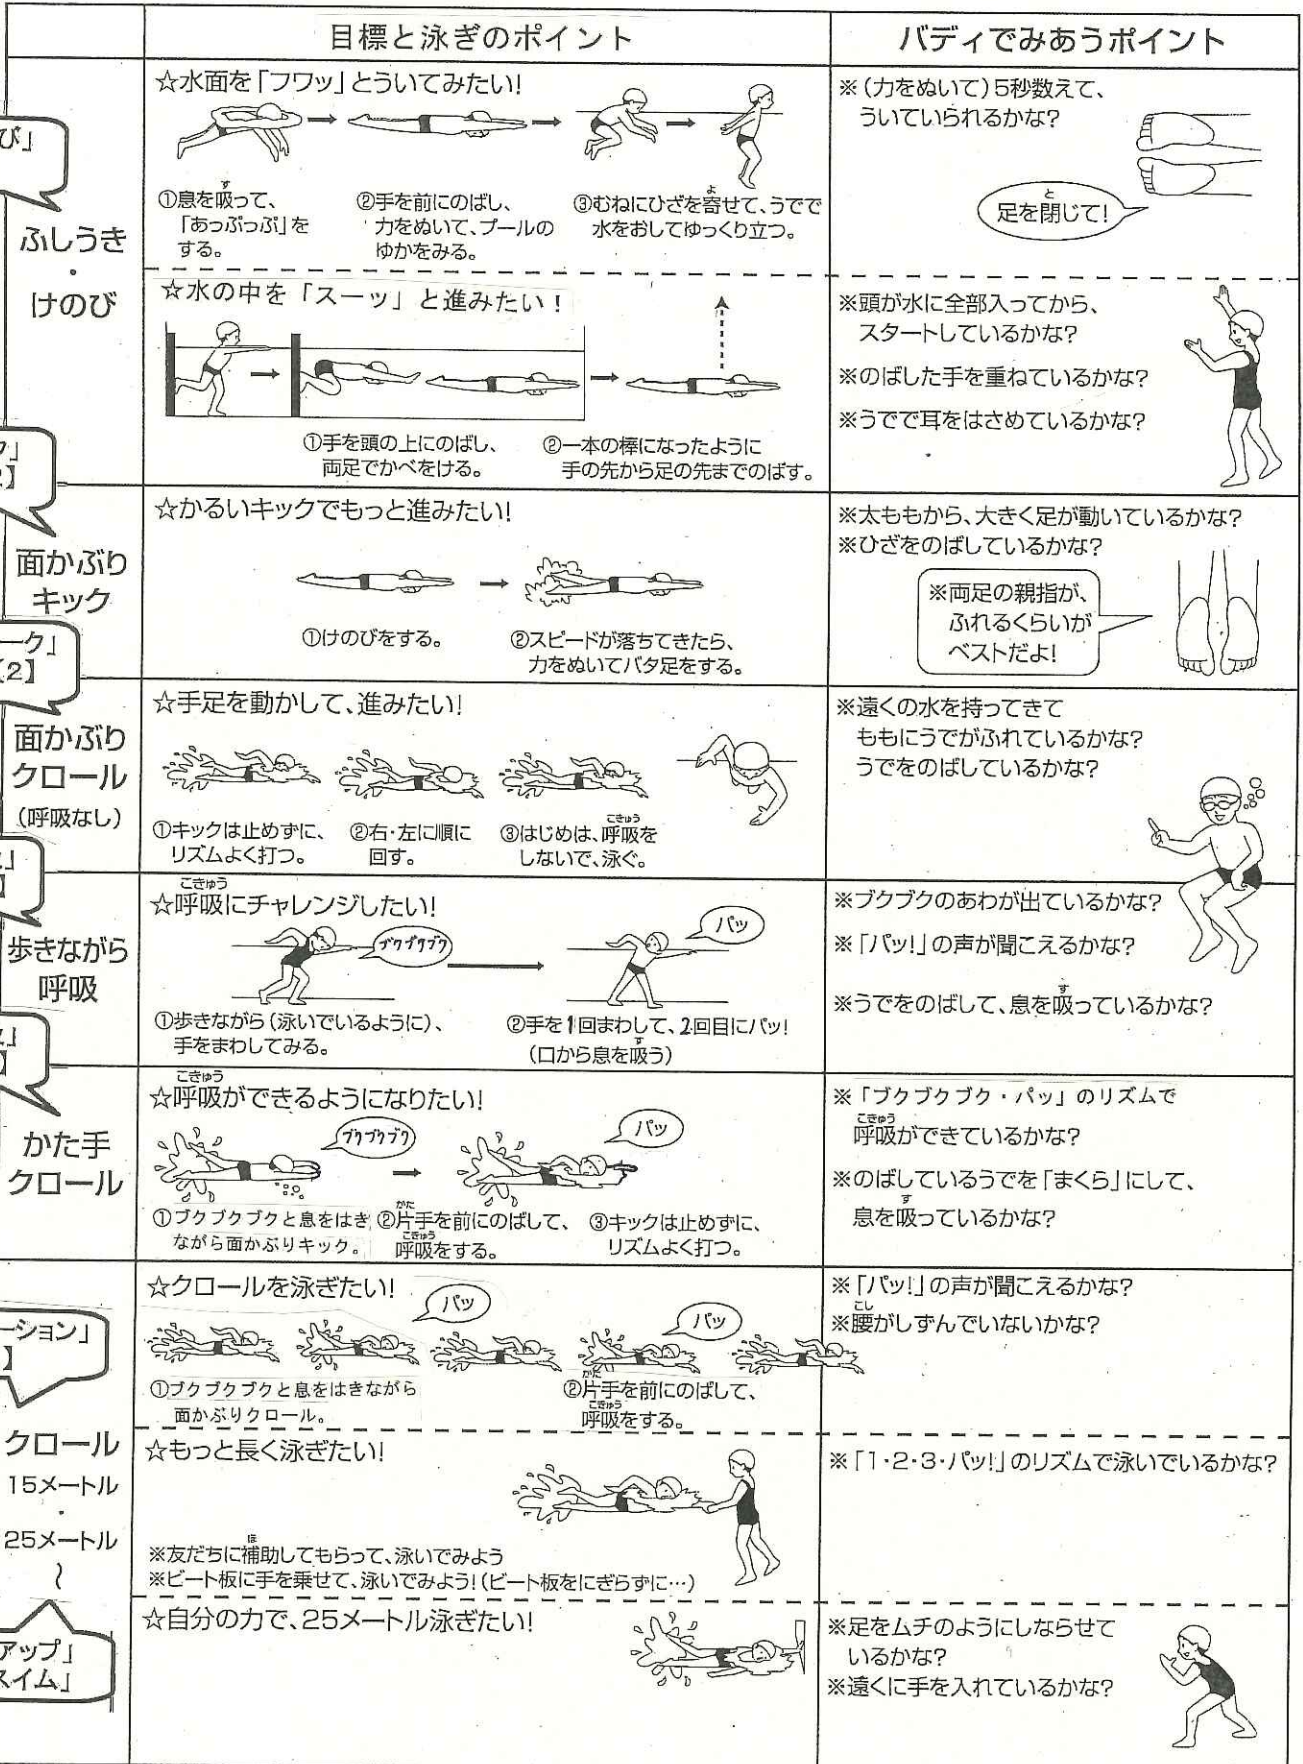 目標と泳ぎのポイント
バディでみあうポイント
び」
ふしうき
・
けのび
☆水面を「フワッ」とういてみたい!
①息を吸って、
「あっぷっぷ」を
する。
②手を前にのばし、
力をぬいて、プールの
ゆかをみる。
③むねにひざを寄せて、うでで
水をおしてゆっくり立つ。
※(力をぬいて)5秒数えて、
ういていられるかな?
足を閉じて!
☆水の中を「スーッ」と進みたい!
①手を頭の上にのばし、
両足でかべをける。
②一本の棒になったように
手の先から足の先までのばす。
※頭が水に全部入ってから、
スタートしているかな?
※のばした手を重ねているかな?
※うでで耳をはさめているかな?
面かぶり
キック
☆かるいキックでもっと進みたい!
①けのびをする。
②スピードが落ちてきたら、
力をぬいてバタ足をする。
※太ももから、大きく足が動いているかな?
※ひざをのばしているかな?
※両足の親指が、
ふれるくらいが
ベストだよ!
ーク」
【2】
面かぶり
クロール
(呼吸なし)
☆手足を動かして、進みたい!
①キックは止めずに、
リズムよく打つ。
②右・左に順に
回す。
③はじめは、呼吸を
しないで、泳ぐ。
※遠くの水を持ってきて
ももにうでがふれているかな?
うでをのばしているかな?
歩きながら
呼吸
☆呼吸にチャレンジしたい!
ブクブクブク
パッ
①歩きながら(泳いでいるように)、
手をまわしてみる。
②手を1回まわして、2回目にパッ!
(口から息を吸う)
※ブクブクのあわが出ているかな?
※「パッ!」の声が聞こえるかな?
※うでをのばして、息を吸っているかな?
かた手
クロール
☆呼吸ができるようになりたい!
ブクブクブク
パッ
①ブクブクブクと息をはき
ながら面かぶりキック。
②片手を前にのばして、
呼吸をする。
③キックは止めずに、
リズムよく打つ。
※「ブクブクブク・パッ」のリズムで
呼吸ができているかな?
※のばしているうでを「まくら」にして、
息を吸っているかな?
ーション」
】
クロール
15メートル
・
25メートル
〜
☆クロールを泳ぎたい!
パッ
パッ
①ブクブクブクと息をはきながら
面かぶりクロール。
②片手を前にのばして、
呼吸をする。
※「パッ!」の声が聞こえるかな?
※腰がしずんでいないかな?
☆もっと長く泳ぎたい!
※友だちに補助してもらって、泳いでみよう
※ビート板に手を乗せて、泳いでみよう!(ビート板をにぎらずに…)
※「1・2・3・パッ!」のリズムで泳いでいるかな?
アップ」
スイム」
☆自分の力で、25メートル泳ぎたい!
※足をムチのようにしならせて
いるかな?
※遠くに手を入れているかな?